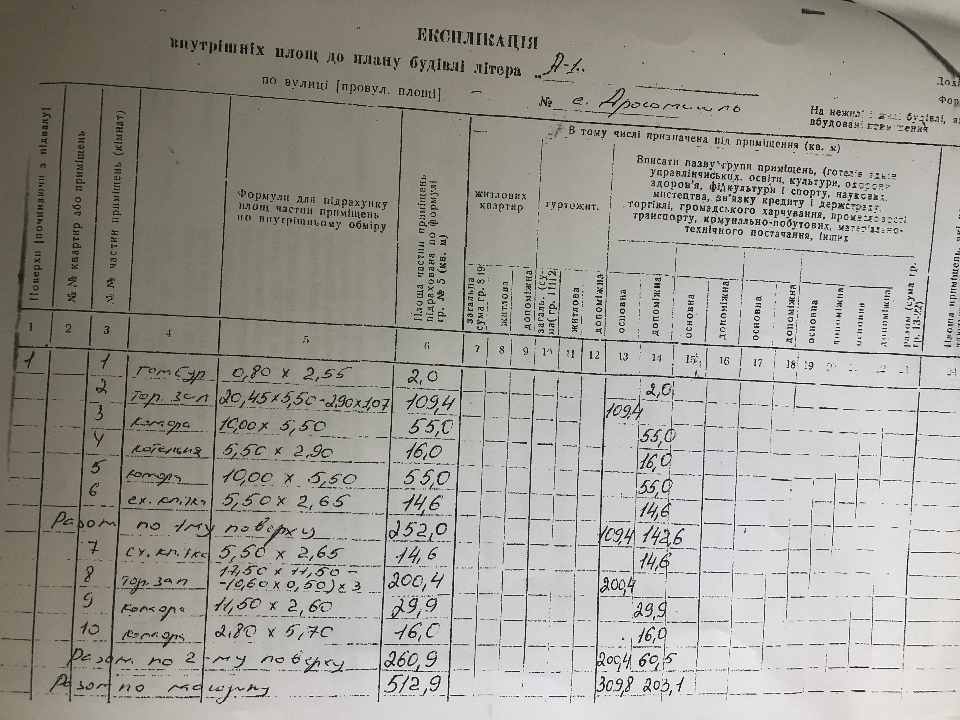 ЕКСПЛІКАЦІЯ
внутрішніх площ до плану будівлі літера „А-1"
по вулиці [провул. площі] — № с. Дросопишль
На нежилі
вбудовані приміщення
Поверхи [починаючи з підвалу]
№ № квартир або приміщень
№ № частин приміщень (кімнат)
Формули для підрахунку
площ частин приміщень
по внутрішньому обміру
Площа частин приміщень
підрахована по формулі
гр. № 5 (кв. м)
В тому числі призначена під приміщення (кв. м)
житлових
квартир
гуртожит.
Вписати назву групи приміщень, (готелів
управлінчиських, освіти, культури, охорони
здоров'я, фізкультури і спорту, наукових,
мистецтва, зв'язку кредиту і держстраху,
торгівлі, громадського харчування, промисловості
транспорту, комунально-побутових, матеріально-
технічного постачання, інших
загальна
сума гр. 8 і 9
житлова
допоміжна
загаль. (су-
ма гр. 11 і 12)
житлова
допоміжна
основна
допоміжна
основна
допоміжна
основна
допоміжна
основна
допоміжна
основна
допоміжна
разом (сума гр.
гр. 13-22)
1 2 3 4 5 6 7 8 9 10 11 12 13 14 15 16 17 18 19
1 1 тамбур 0,80 x 2,55 2,0 2,0
2 тор. зал 20,45x5,50-2,90x1,07 109,4 109,4
3 комора 10,00 x 5,50 55,0 55,0
4 котельня 5,50 x 2,90 16,0 16,0
5 комора 10,00 x 5,50 55,0 55,0
6 сх. кл.іка 5,50 x 2,65 14,6 14,6
Разом по 1му поверху 252,0 109,4 142,6
7 сх. кл.іка 5,50 x 2,65 14,6 14,6
8 тор. зал 17,50 x 11,50 -
-(0,60 x 0,50) x 3 200,4 200,4
9 комора 11,50 x 2,60 29,9 29,9
10 комора 2,80 x 5,70 16,0 16,0
Разом по 2-му поверху 260,9 200,4 60,5
Разом по 512,9 309,8 203,1